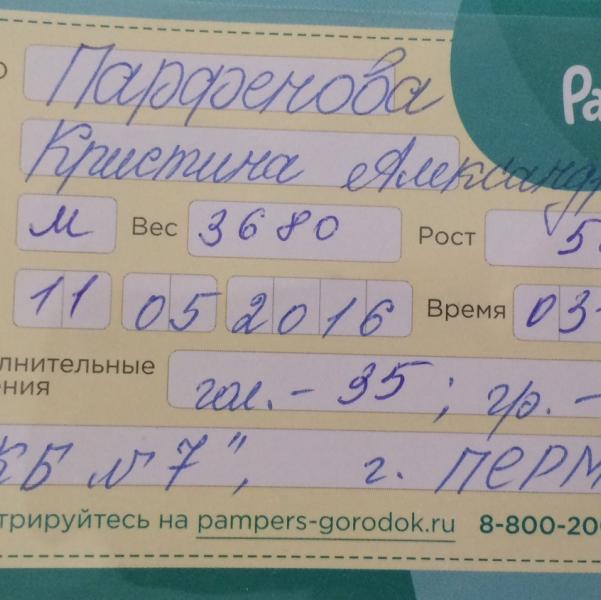 Pa
Парфенова
Кристина Александр
м Вес 3680 Рост 5
11 05 2016 Время 03
лнительные
ения гол. - 35; гр. -
КБ №7", г. ПЕРМ
трируйтесь на pampers-gorodok.ru 8-800-20